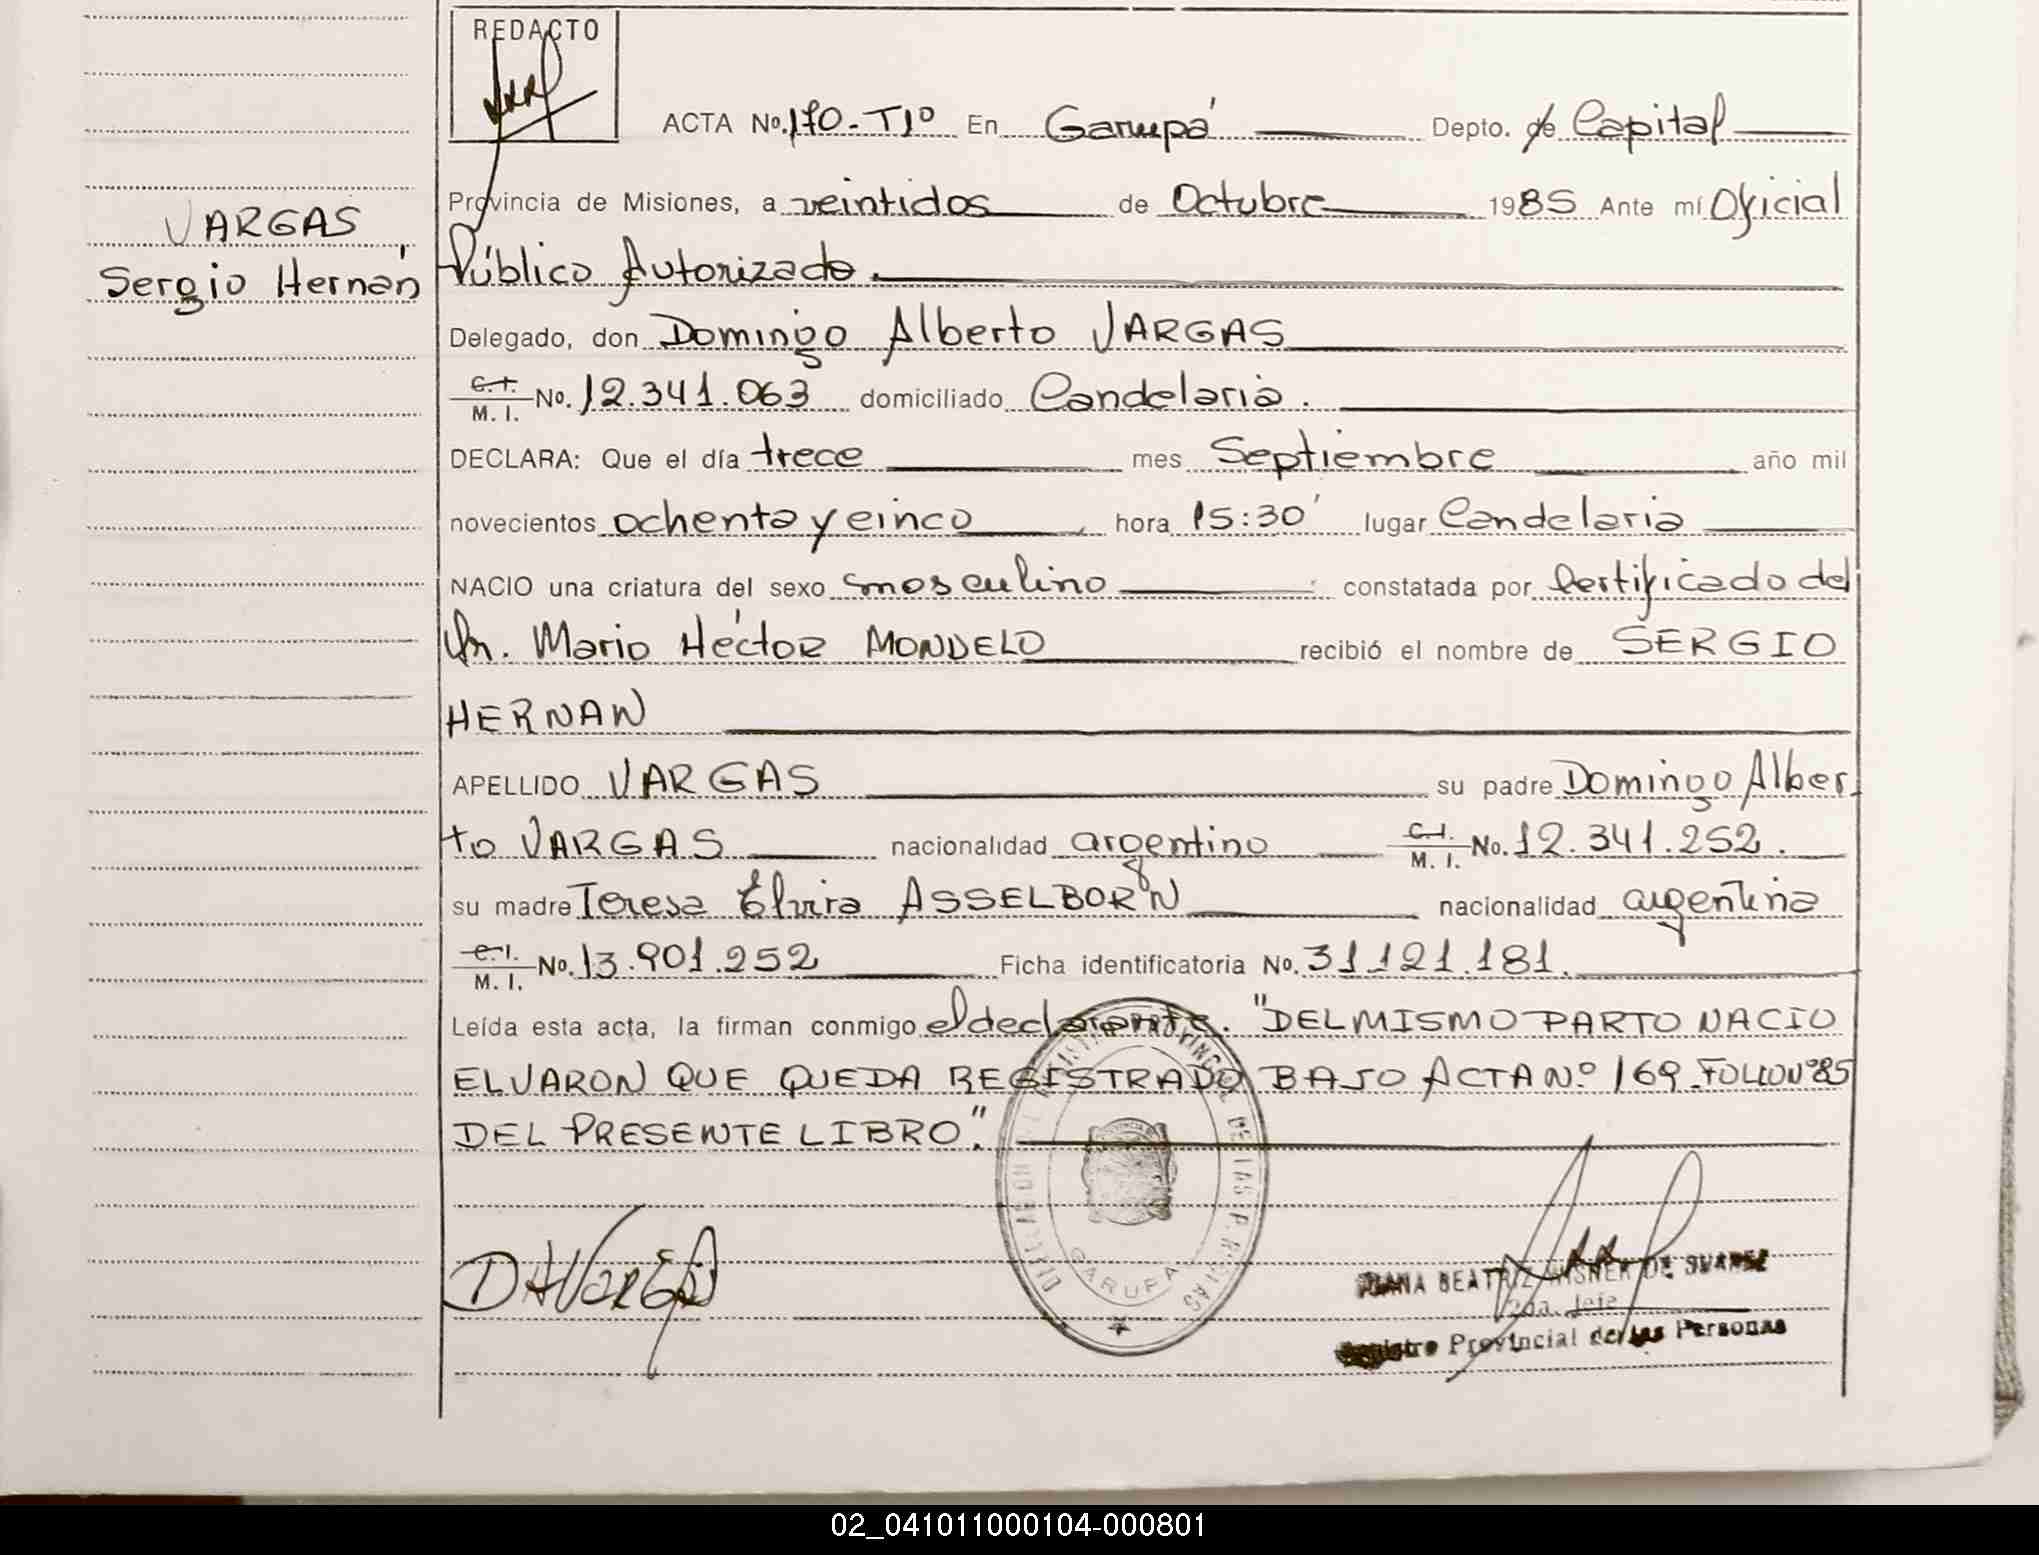 REDACTO
ACTA No. 170-Tº1º En Garupá Depto. de Capital
VARGAS
Sergio Hernán
Provincia de Misiones, a veintidos de Octubre 1985 Ante mí Oficial
Público Autorizado.
Delegado, don Domingo Alberto VARGAS
C.I. M. I. No. 12.341.063 domiciliado Candelaria.
DECLARA: Que el día trece mes Septiembre año mil
novecientos ochenta y cinco hora 15:30' lugar Candelaria
NACIO una criatura del sexo masculino constatada por Certificado del
Dr. Mario Héctor MONDELO recibió el nombre de SERGIO
HERNAN
APELLIDO VARGAS su padre Domingo Alber
to VARGAS nacionalidad argentino C.I. M. I. No. 12.341.252.
su madre Teresa Elvira ASSELBORN nacionalidad argentina
C.I. M. I. No. 13.901.252 Ficha identificatoria No. 31.121.181.
Leída esta acta, la firman conmigo el declarante. "DEL MISMO PARTO NACIO
EL VARON QUE QUEDA REGISTRADO BAJO ACTA Nº 169. FOLIO Nº 85
DEL PRESENTE LIBRO."
REGISTRO PROVINCIAL DE LAS PERSONAS
GARUPA
DAVargas
JUANA BEATRIZ DE SUAREZ
2da. Jefe
Registro Provincial de las Personas
02_041011000104-000801